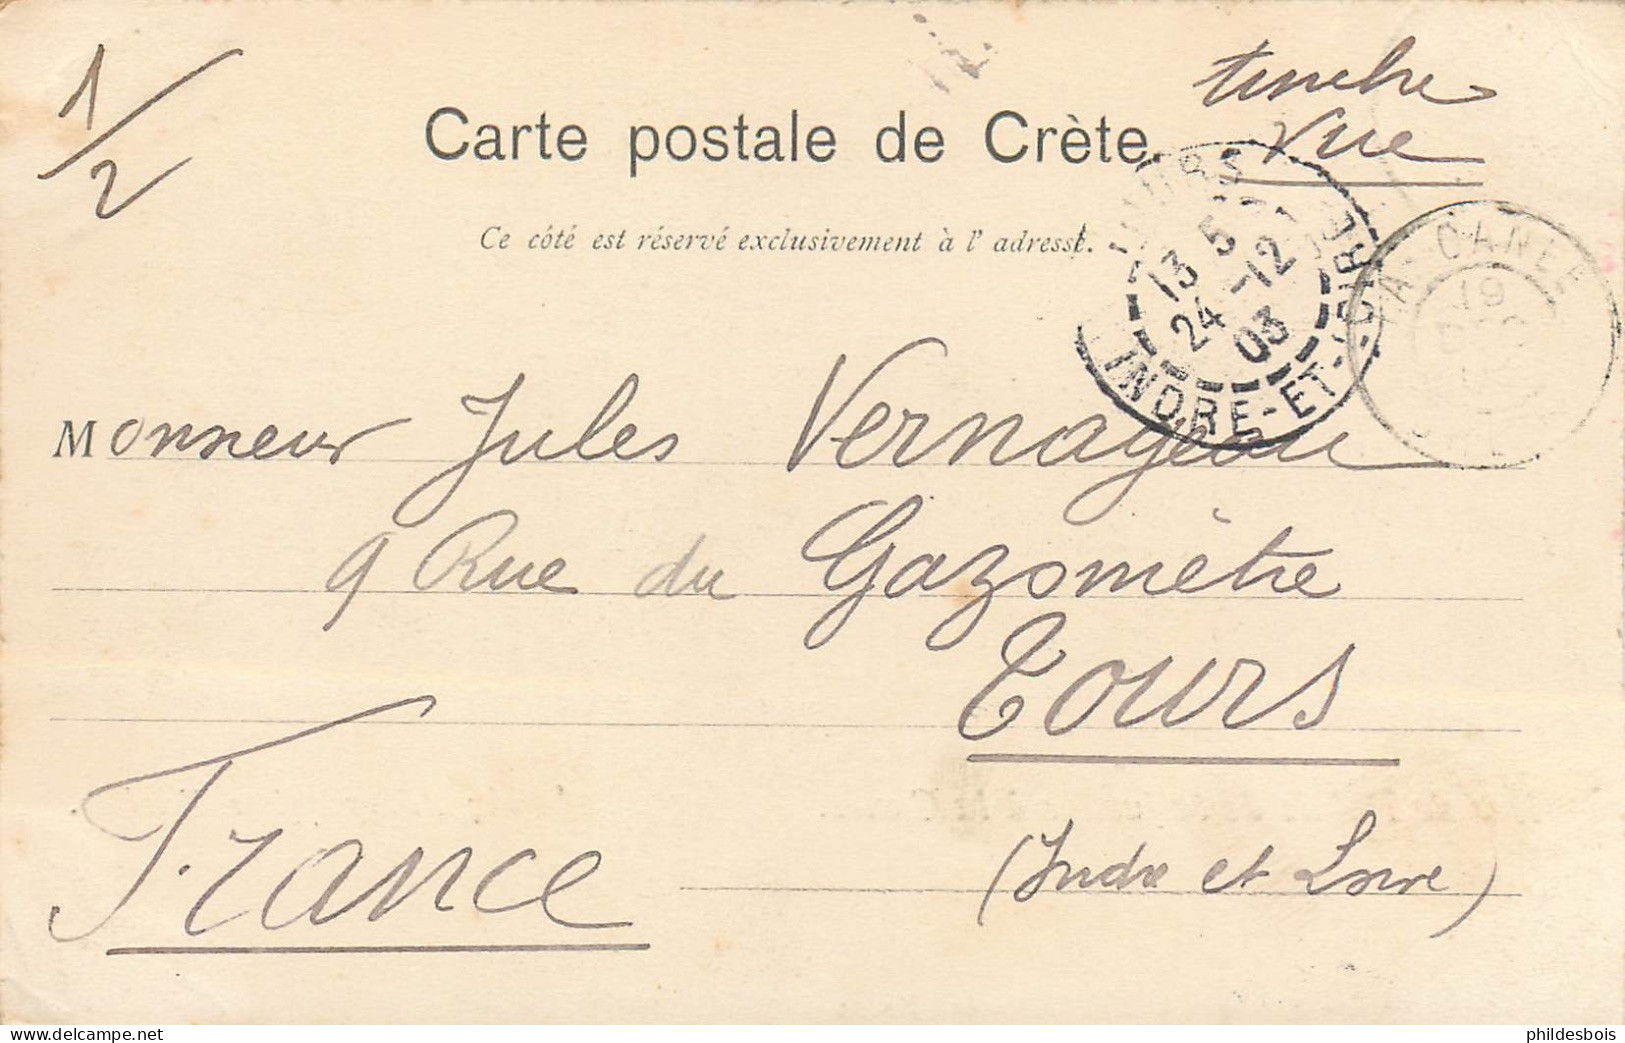 1/2
timbre
Vue
Carte postale de Crète.
Ce côté est réservé exclusivement à l' adresse.
TOURS
13 5
24 -12
03
INDRE-ET-LOIRE
LA CANÉE
19
DEC
Monsieur Jules Vernageau
9 Rue du Gazomètre
Tours
France
(Indre et Loire)
phildesbois